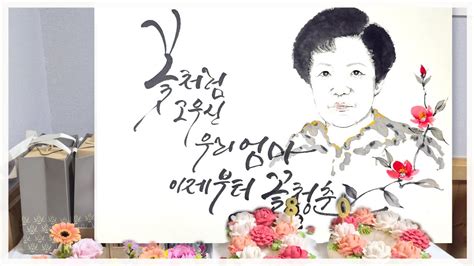 꽃처럼
고우신
우리엄마
이제부터 꽃청춘
80